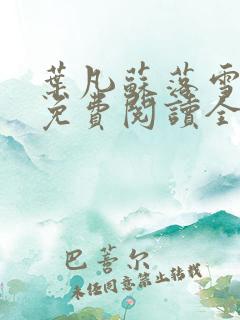 葉凡蘇落雪
免費閱讀全
巴蒼尔
未经同意禁止转载